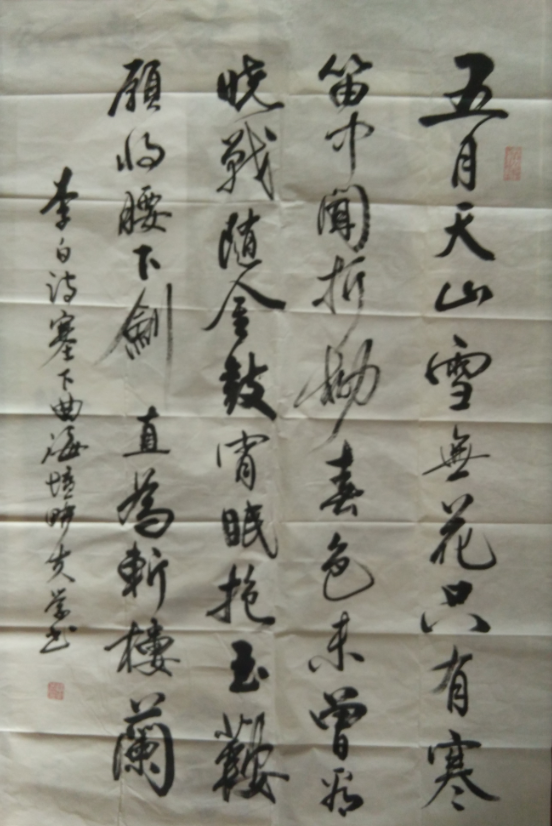 五月天山雪無花只有寒
笛中聞折柳春色未曾看
晓戰随金鼓宵眠抱玉鞍
願将腰下劍直為斬樓蘭
李白诗塞下曲海